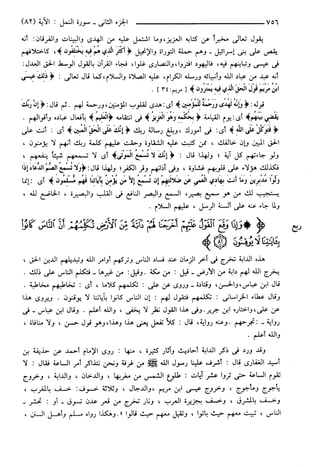 ٧٥٦ الجزء الثاني - سورة النمل : الآية (٨٢)
يقول تعالى مخبراً عن كتابه العزيز، وما اشتمل عليه من الهدى والبينات والفرقان: أنه
يقص على بني إسرائيل - وهم حملة التوراة والإنجيل ﴿أكثر الذي هم فيه يختلفون﴾، كاختلافهم
في عيسى وتباينهم فيه، فاليهود افتروا، والنصارى غلوا، فجاء القرآن بالقول الوسط الحق العدل:
أنه عبد من عباد الله وأنبيائه ورسله الكرام، عليه الصلاة والسلام، كما قال تعالى: ﴿ذلك عيسى
ابن مريم قول الحق الذي فيه يمترون﴾ [مريم: ٣٤].
قوله: ﴿وإنه لهدى ورحمة للمؤمنين﴾ أي: هدى لقلوب المؤمنين، ورحمة لهم. ثم قال: ﴿إن ربك
يقضي بينهم﴾ أي: يوم القيامة ﴿بحكمه وهو العزيز﴾ في انتقامه ﴿العليم﴾ بأفعال عباده وأقوالهم.
﴿فتوكل على الله﴾ أي: في أمورك، وبلغ رسالة ربك ﴿إنك على الحق المبين﴾ أي: أنت على
الحق المبين وإن خالفك، ممن كتبت عليه الشقاوة وحقت عليهم كلمة ربك أنهم لا يؤمنون،
ولو جاءتهم كل آية؛ ولهذا قال: ﴿إنك لا تسمع الموتى﴾ أي: لا تسمعهم شيئاً ينفعهم،
فكذلك هؤلاء على قلوبهم غشاوة، وفي آذانهم وقر الكفر؛ ولهذا قال: ﴿ولا تسمع الصم الدعاء إذا
ولوا مدبرين وما أنت بهادي العمي عن ضلالتهم إن تسمع إلا من يؤمن بآياتنا فهم مسلمون﴾ أي: إنما
يستجيب لك من هو سميع بصير، السمع والبصر النافع في القلب والبصيرة، الخاضع لله،
ولما جاء عنه على ألسنة الرسل، عليهم السلام.
﴿وإذا وقع القول عليهم أخرجنا لهم دابة من الأرض تكلمهم أن الناس كانوا
بآياتنا لا يوقنون﴾
ربع
هذه الدابة تخرج في آخر الزمان عند فساد الناس وتركهم أوامر الله وتبديلهم الدين الحق،
يخرج الله لهم دابة من الأرض - قيل: من مكة. وقيل: من غيرها - فتكلم الناس على ذلك.
قال ابن عباس، والحسن، وقتادة - وروي عن علي: تكلمهم كلاما، أي: تخاطبهم مخاطبة.
وقال عطاء الخراساني: تكلمهم فتقول لهم: إن الناس كانوا بآياتنا لا يوقنون. ويروى هذا
عن علي، واختاره ابن جرير. وفي هذا القول نظر لا يخفى، والله أعلم. وقال ابن عباس - في
رواية -: تجرحهم. وعنه رواية، قال: كلاً تفعل يعني هذا وهذا، وهو قول حسن، ولا منافاة،
والله أعلم.
وقد ورد في ذكر الدابة أحاديث وآثار كثيرة، منها: روى الإمام أحمد عن حذيفة بن
أسيد الغفاري قال: أشرف علينا رسول الله ﷺ من غرفة ونحن نتذاكر أمر الساعة فقال: لا
تقوم الساعة حتى تروا عشر آيات: طلوع الشمس من مغربها، والدخان، والدابة، وخروج
يأجوج ومأجوج، وخروج عيسى ابن مريم، والدجال، وثلاثة خسوف: خسف بالمغرب،
وخسف بالمشرق، وخسف بجزيرة العرب، ونار تخرج من قعر عدن تسوق - أو: تحشر -
الناس، تبيت معهم حيث باتوا، وتقيل معهم حيث قالوا». وهكذا رواه مسلم وأهل السنن،